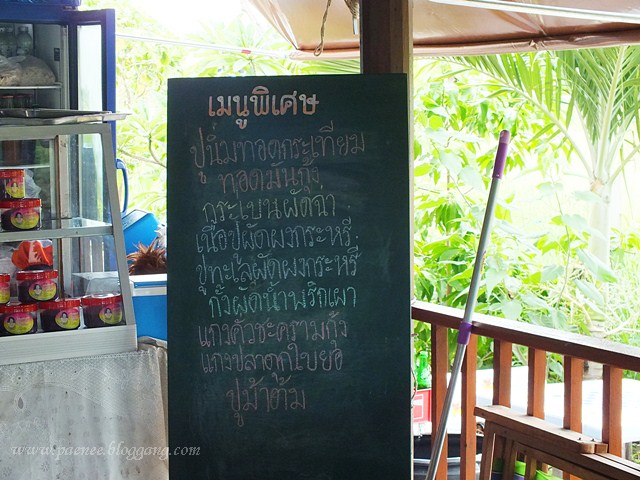 เมนูพิเศษ
ปูนิ่มทอดกระเทียม
ทอดมันกุ้ง
กระเบนผัดฉ่า
เนื้อปูผัดผงกระหรี่
ปูทะเลผัดผงกระหรี่
กุ้งผัดน้ำพริกเผา
แกงคั่วชะครามกุ้ง
แกงปลาดุกใบยอ
ปูม้าต้ม
www.paenee.bloggang.com